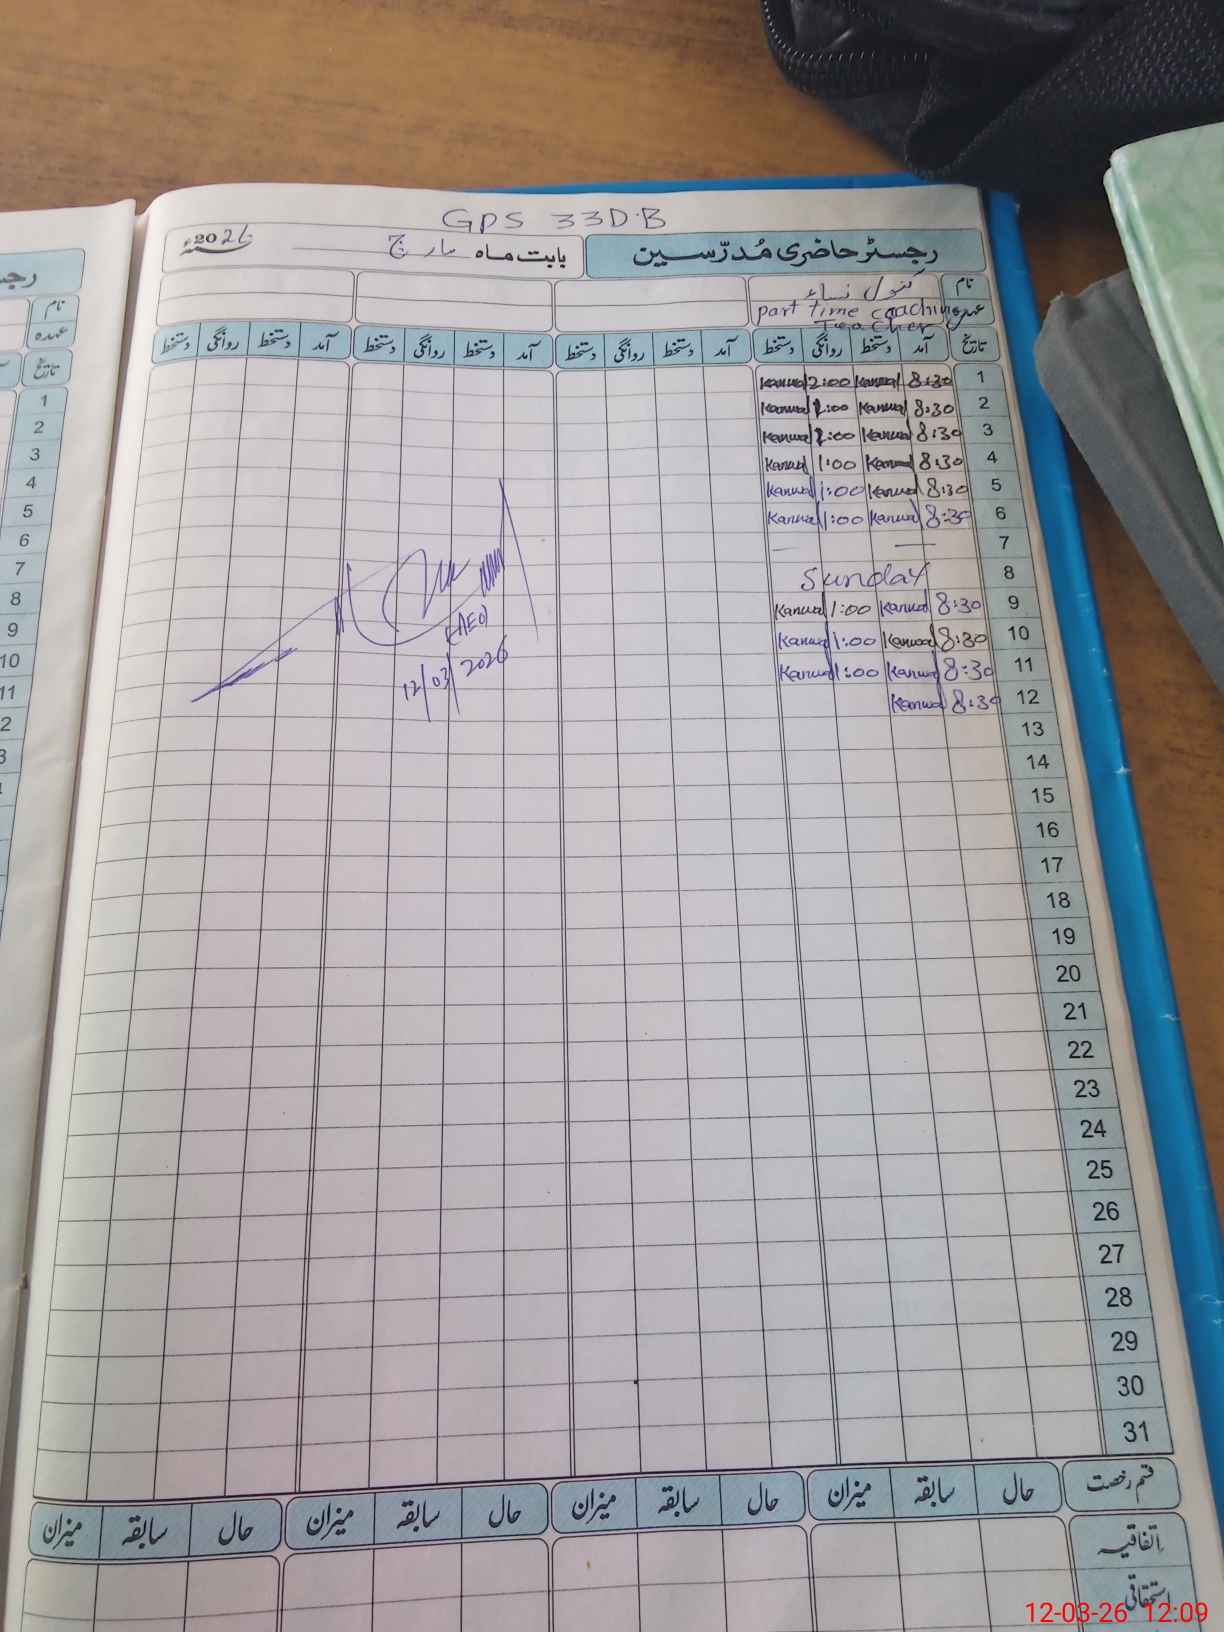 GPS 33D.B
رجسٹر حاضری مُدرّسین بابت ماہ مارچ 2026ء
نام کنول نساء
عہدہ part time coaching Teacher
تاریخ آمد دستخط روانگی دستخط آمد دستخط روانگی دستخط آمد دستخط روانگی دستخط آمد دستخط روانگی دستخط
1 8:30 Kanwal 2:00 Kanwal
2 8:30 Kanwal 1:00 Kanwal
3 8:30 Kanwal 1:00 Kanwal
4 8:30 Kanwal 1:00 Kanwal
5 8:30 Kanwal 1:00 Kanwal
6 8:30 Kanwal 1:00 Kanwal
7 — —
8 Sunday
9 8:30 Kanwal 1:00 Kanwal
10 8:30 Kanwal 1:00 Kanwal
11 8:30 Kanwal 1:00 Kanwal
12 8:30 Kanwal
(AEO)
12/03/2026
13
14
15
16
17
18
19
20
21
22
23
24
25
26
27
28
29
30
31
قسم رخصت حال سابقہ میزان حال سابقہ میزان حال سابقہ میزان حال سابقہ میزان
اتفاقیہ
استحقاقی
نام
عہدہ
تاریخ
1
2
3
4
5
6
7
8
9
10
11
12-03-26 12:09